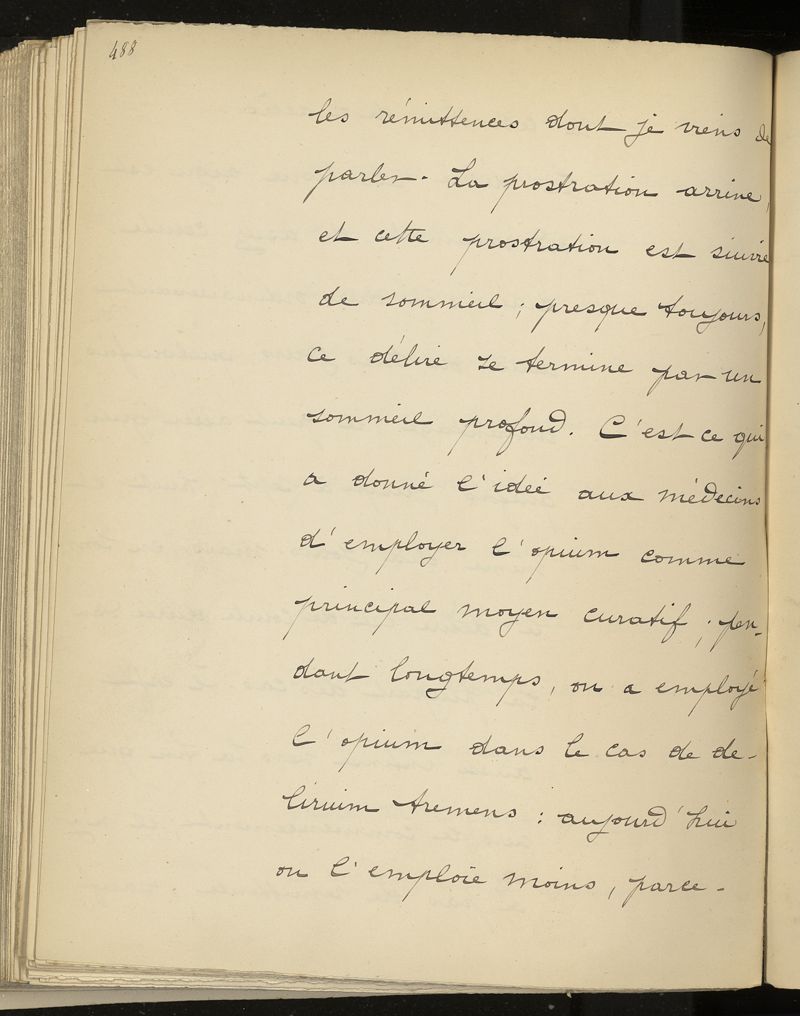 488
les rémittences dont je viens de
parler. La prostration arrive,
et cette prostration est suivie
de sommeil ; presque toujours,
ce délire se termine par un
sommeil profond. C'est ce qui
a donné l'idée aux médecins
d'employer l'opium comme
principal moyen curatif ; pen-
dant longtemps, on a employé
l'opium dans le cas de de-
lirium tremens : aujourd'hui
on l'emploie moins, parce-